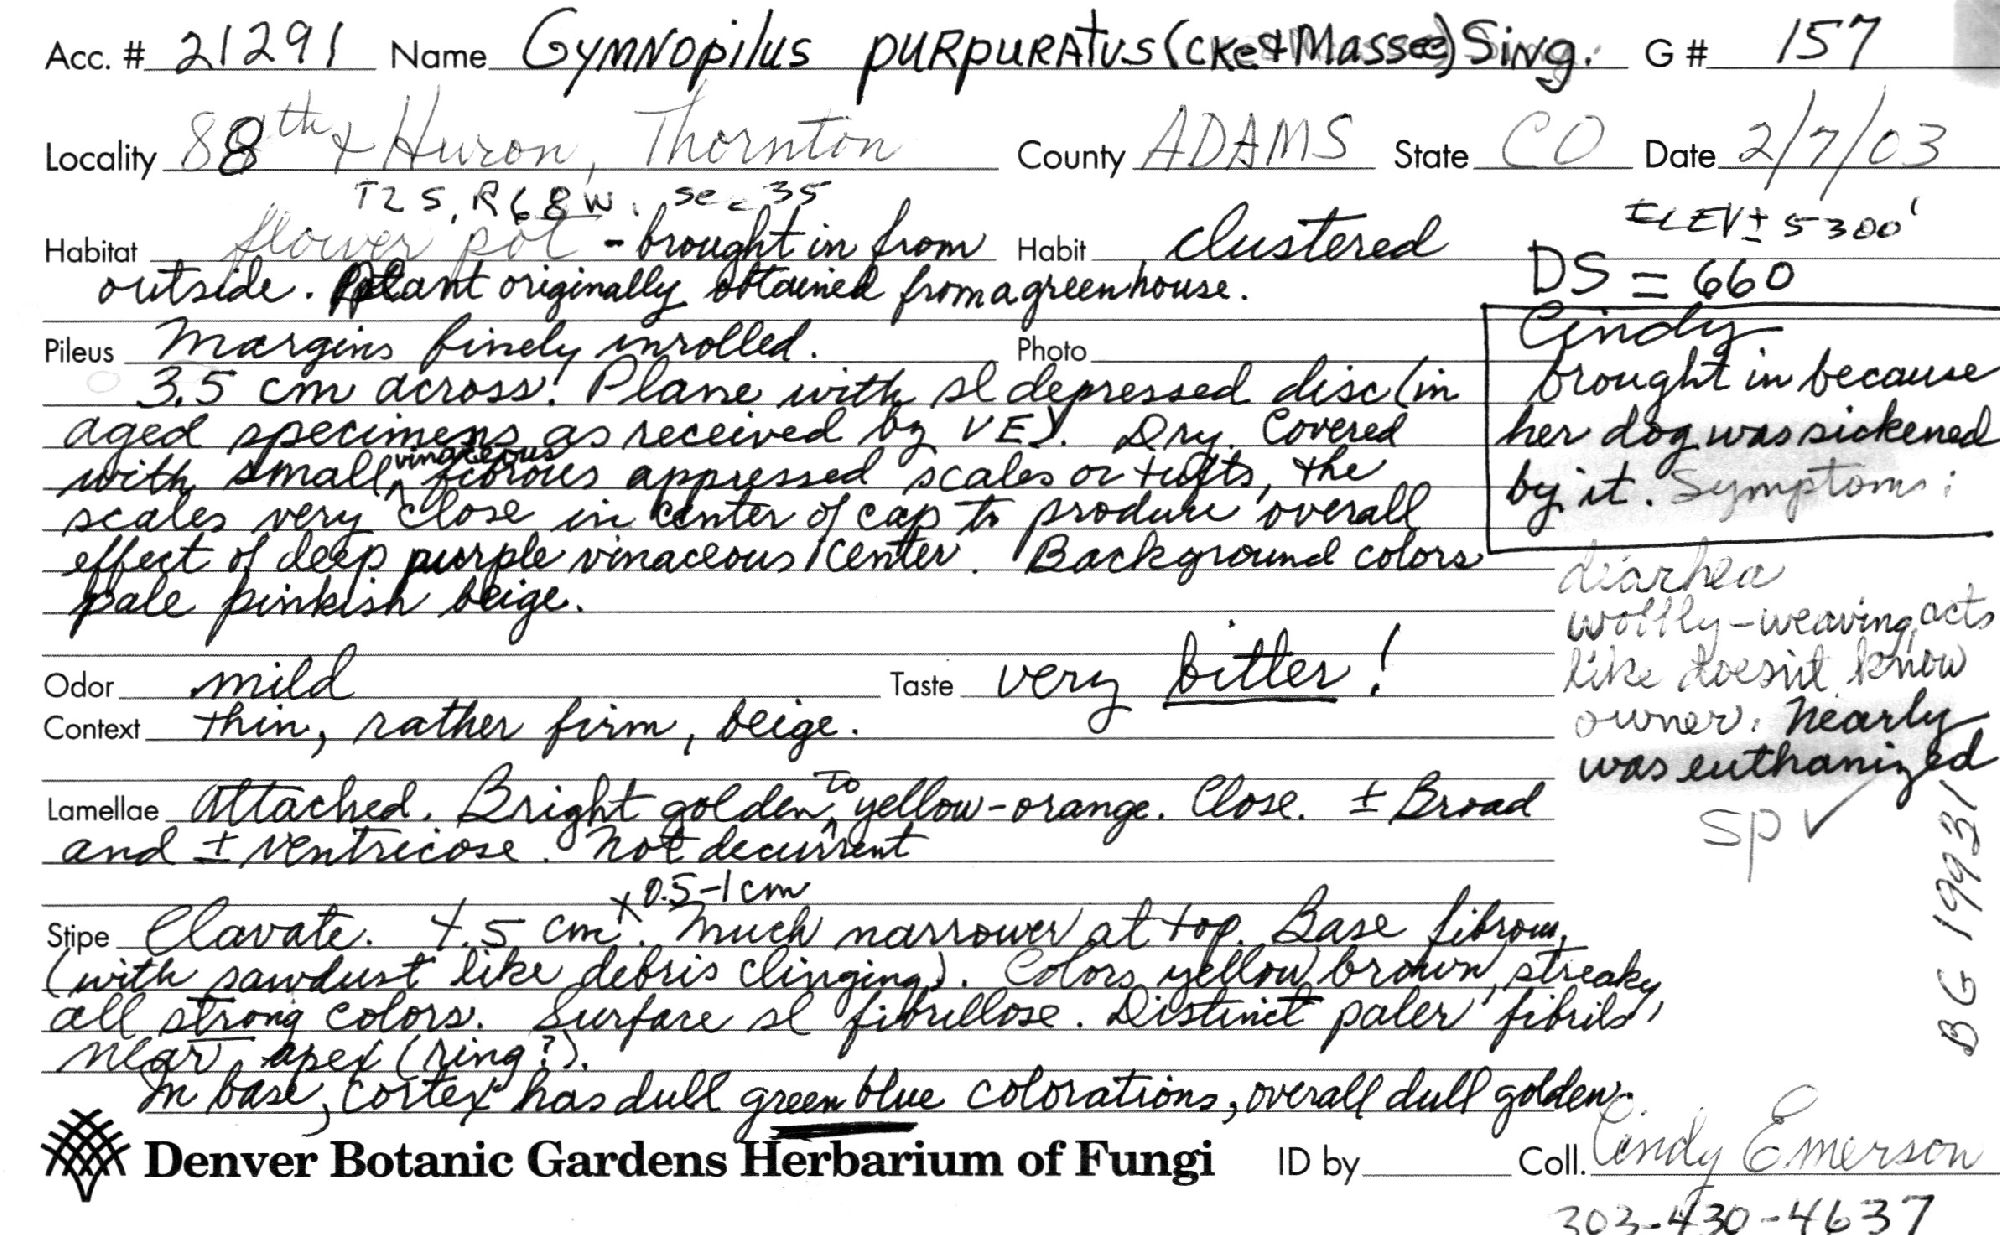 Acc. # 21291 Name Gymnopilus purpuratus (Cke & Massee) Sing. G # 157
Locality 88th & Huron, Thornton County ADAMS State CO Date 2/7/03
T2S, R68W, sec 35
ELEV ± 5300'
Habitat flower pot - brought in from Habit clustered
outside. Plant originally obtained from a greenhouse.
DS = 660
Pileus Margins finely inrolled. Photo
3.5 cm across. Plane with sl depressed disc (in
aged specimens as received by VE). Dry. Covered
with small ^vinaceous fibrous appressed scales or tufts, the
scales very close in center of cap to produce overall
effect of deep purple vinaceous center. Background colors
pale pinkish beige.
Cindy
brought in because
her dog was sickened
by it. Symptoms:
diarhea
wobbly-weaving, acts
like doesn't know
owner. Nearly
was euthanized
sp ✓
Odor mild Taste very bitter!
Context thin, rather firm, beige.
Lamellae Attached. Bright golden ^to yellow-orange. Close. ± Broad
and ± ventricose. Not decurrent
Stipe Clavate. 4.5 cm x 0.5-1 cm. Much narrower at top. Base fibrous,
(with sawdust like debris clinging). Colors yellow, brown, streaky,
all strong colors. Surface sl fibrillose. Distinct paler fibrils,
near apex (ring?).
In base, cortex has dull green blue colorations, overall dull golden.
BG 19931
Denver Botanic Gardens Herbarium of Fungi ID by Coll. Cindy Emerson
303-430-4637